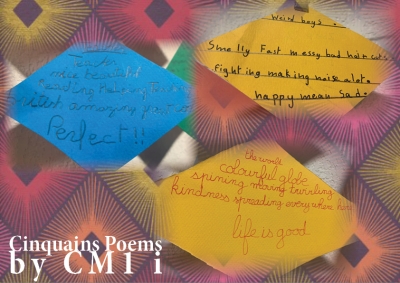 Teacher
nice beautiful
Reading
amazing
Perfect!!
Weird boys.
Smelly Fast messy bad hair cuts.
Fighting making noise alot.
happy mean Sad.
the world
colourful globe
spining moving twirling
kindness spreading everywhere
life is good
Cinquains Poems
by CM1 i